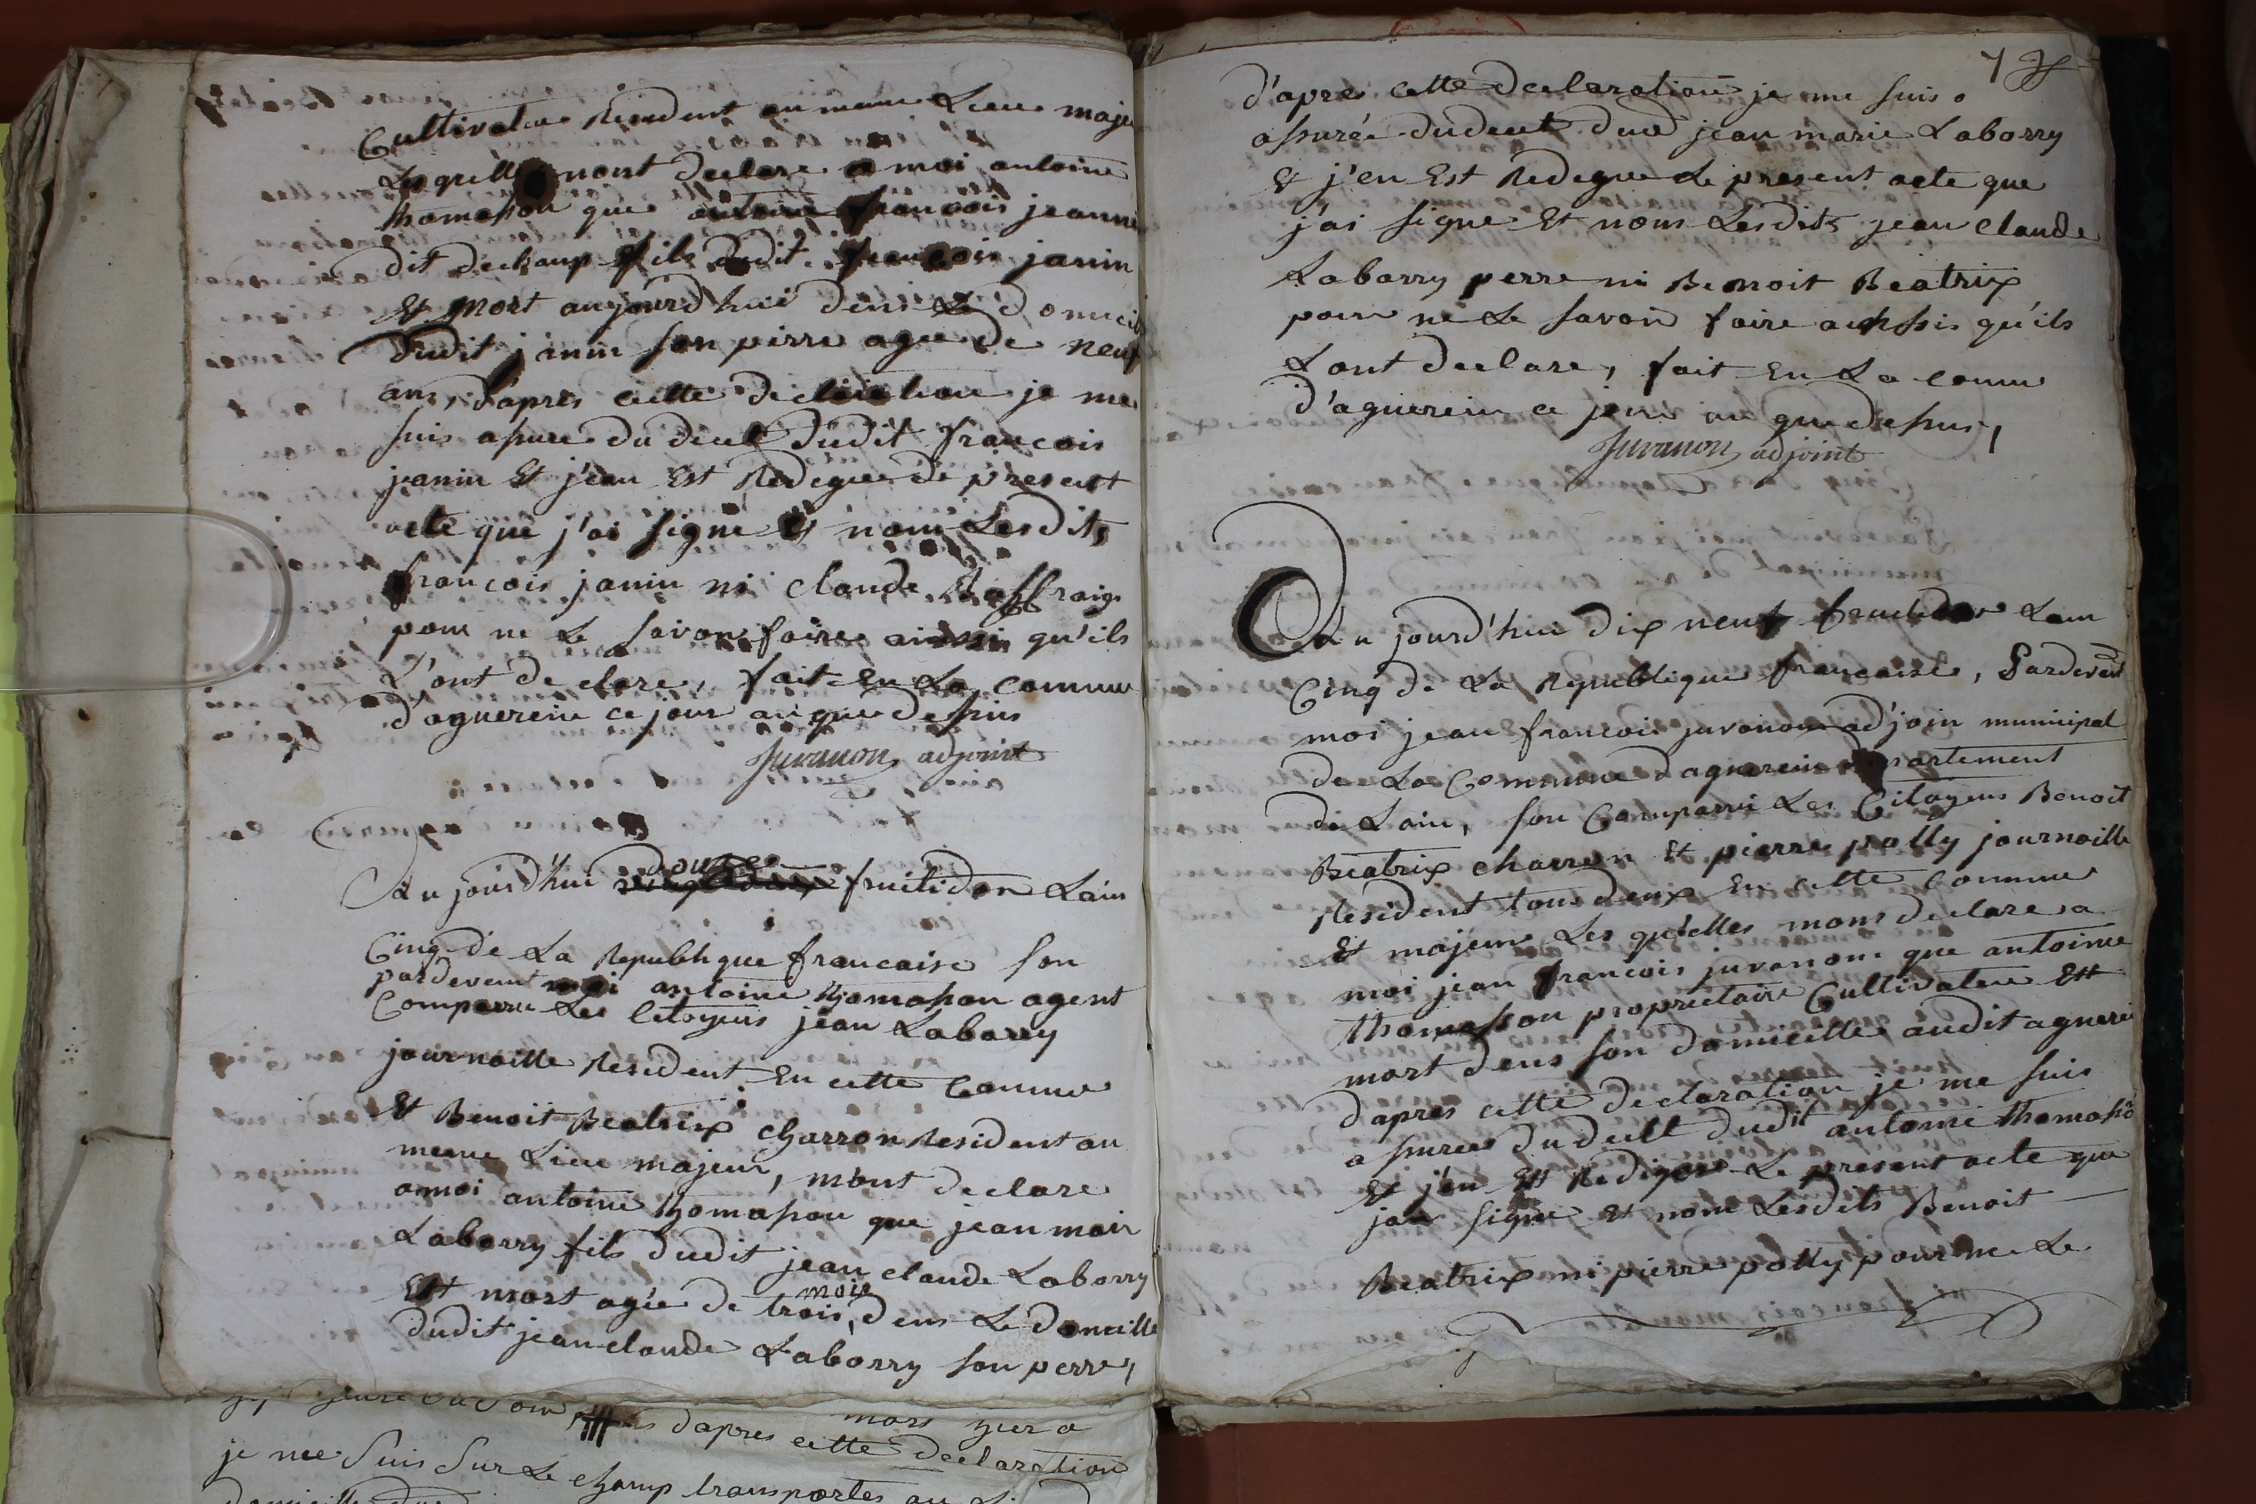 Cultivateur Resident au meme Lieu maje
Lesquelle mont declare a moi antoine
thomasson que antoine francois jeanne
dit dechamp fils dudit francois janin
Et mort aujourd'hui dens Le domicil
dudit janin son pierre agee de neuf
ans, d'apres cette declaration je me
suis assure du deces dudit francois
janin Et j'eau Est Redegue de present
acte que j'ai signe Et nom Lesdits
francois janin ni claude Baffraig
pour ne Le savon faire ainssi qu'ils
L'ont declare, fait En La commu
d'aguerein ce jour an que dessus
Juvanon adjoint
Au jourd'hui douze fruitidor Lain
Cinq de La Republique francaise son
pardevent moi antoine thomasson agent
Comparru Les Citoyens jean Laborry
journaille Resident En cette Commu
Et Benoit Beatrix charron Resident au
meme Lieu majeur, mont declare
a moi antoine thomasson que jean mari
Laborry fils dudit jean claude Laborry
Est mort agée de trois mois, dens Le domicille
dudit jean claude Laborry son perre,
gy heure du soir d'apres mors yer a
cette declaration
je me suis sur Le champ transportes au
7
d'apres cette declaration je me suis
assurée dudeces dud jean marie Laborry
Et j'en Est Redegue Le present acte que
j'ai signe Et nom Lesdits jean claude
Laborry perre ni Benoit Beatrix
pour ne Le savoir faire aussi qu'ils
Lont declare, fait En La commu
d'aguerein ce jour an que dessus,
Juvanon adjoint
Au jourd'hui dix neuf fructidor Lan
Cinq de La Republique francaise, Pardevent
moi jean francois juvanon adjoin municipal
de La Commune d'aguerein departement
de Lain, son Comparru Les Citoyens Benoit
Beatrix charron Et pierre polly journaille
Resident tous deux En cette commu
Et majeur Les quelles mont declare a
moi jean francois juvanon que antoine
thomasson proprietaire Cultivateur Est
mort dens son domicelle audit aguerei
dapres cette declaration je me suis
a suree du decet dudit antoine thomasso
Et j'en Est Rediger Le present acte que
jai signe Et nom Lesdits Benoit
Beatrix ni pierre polly pour ne Le